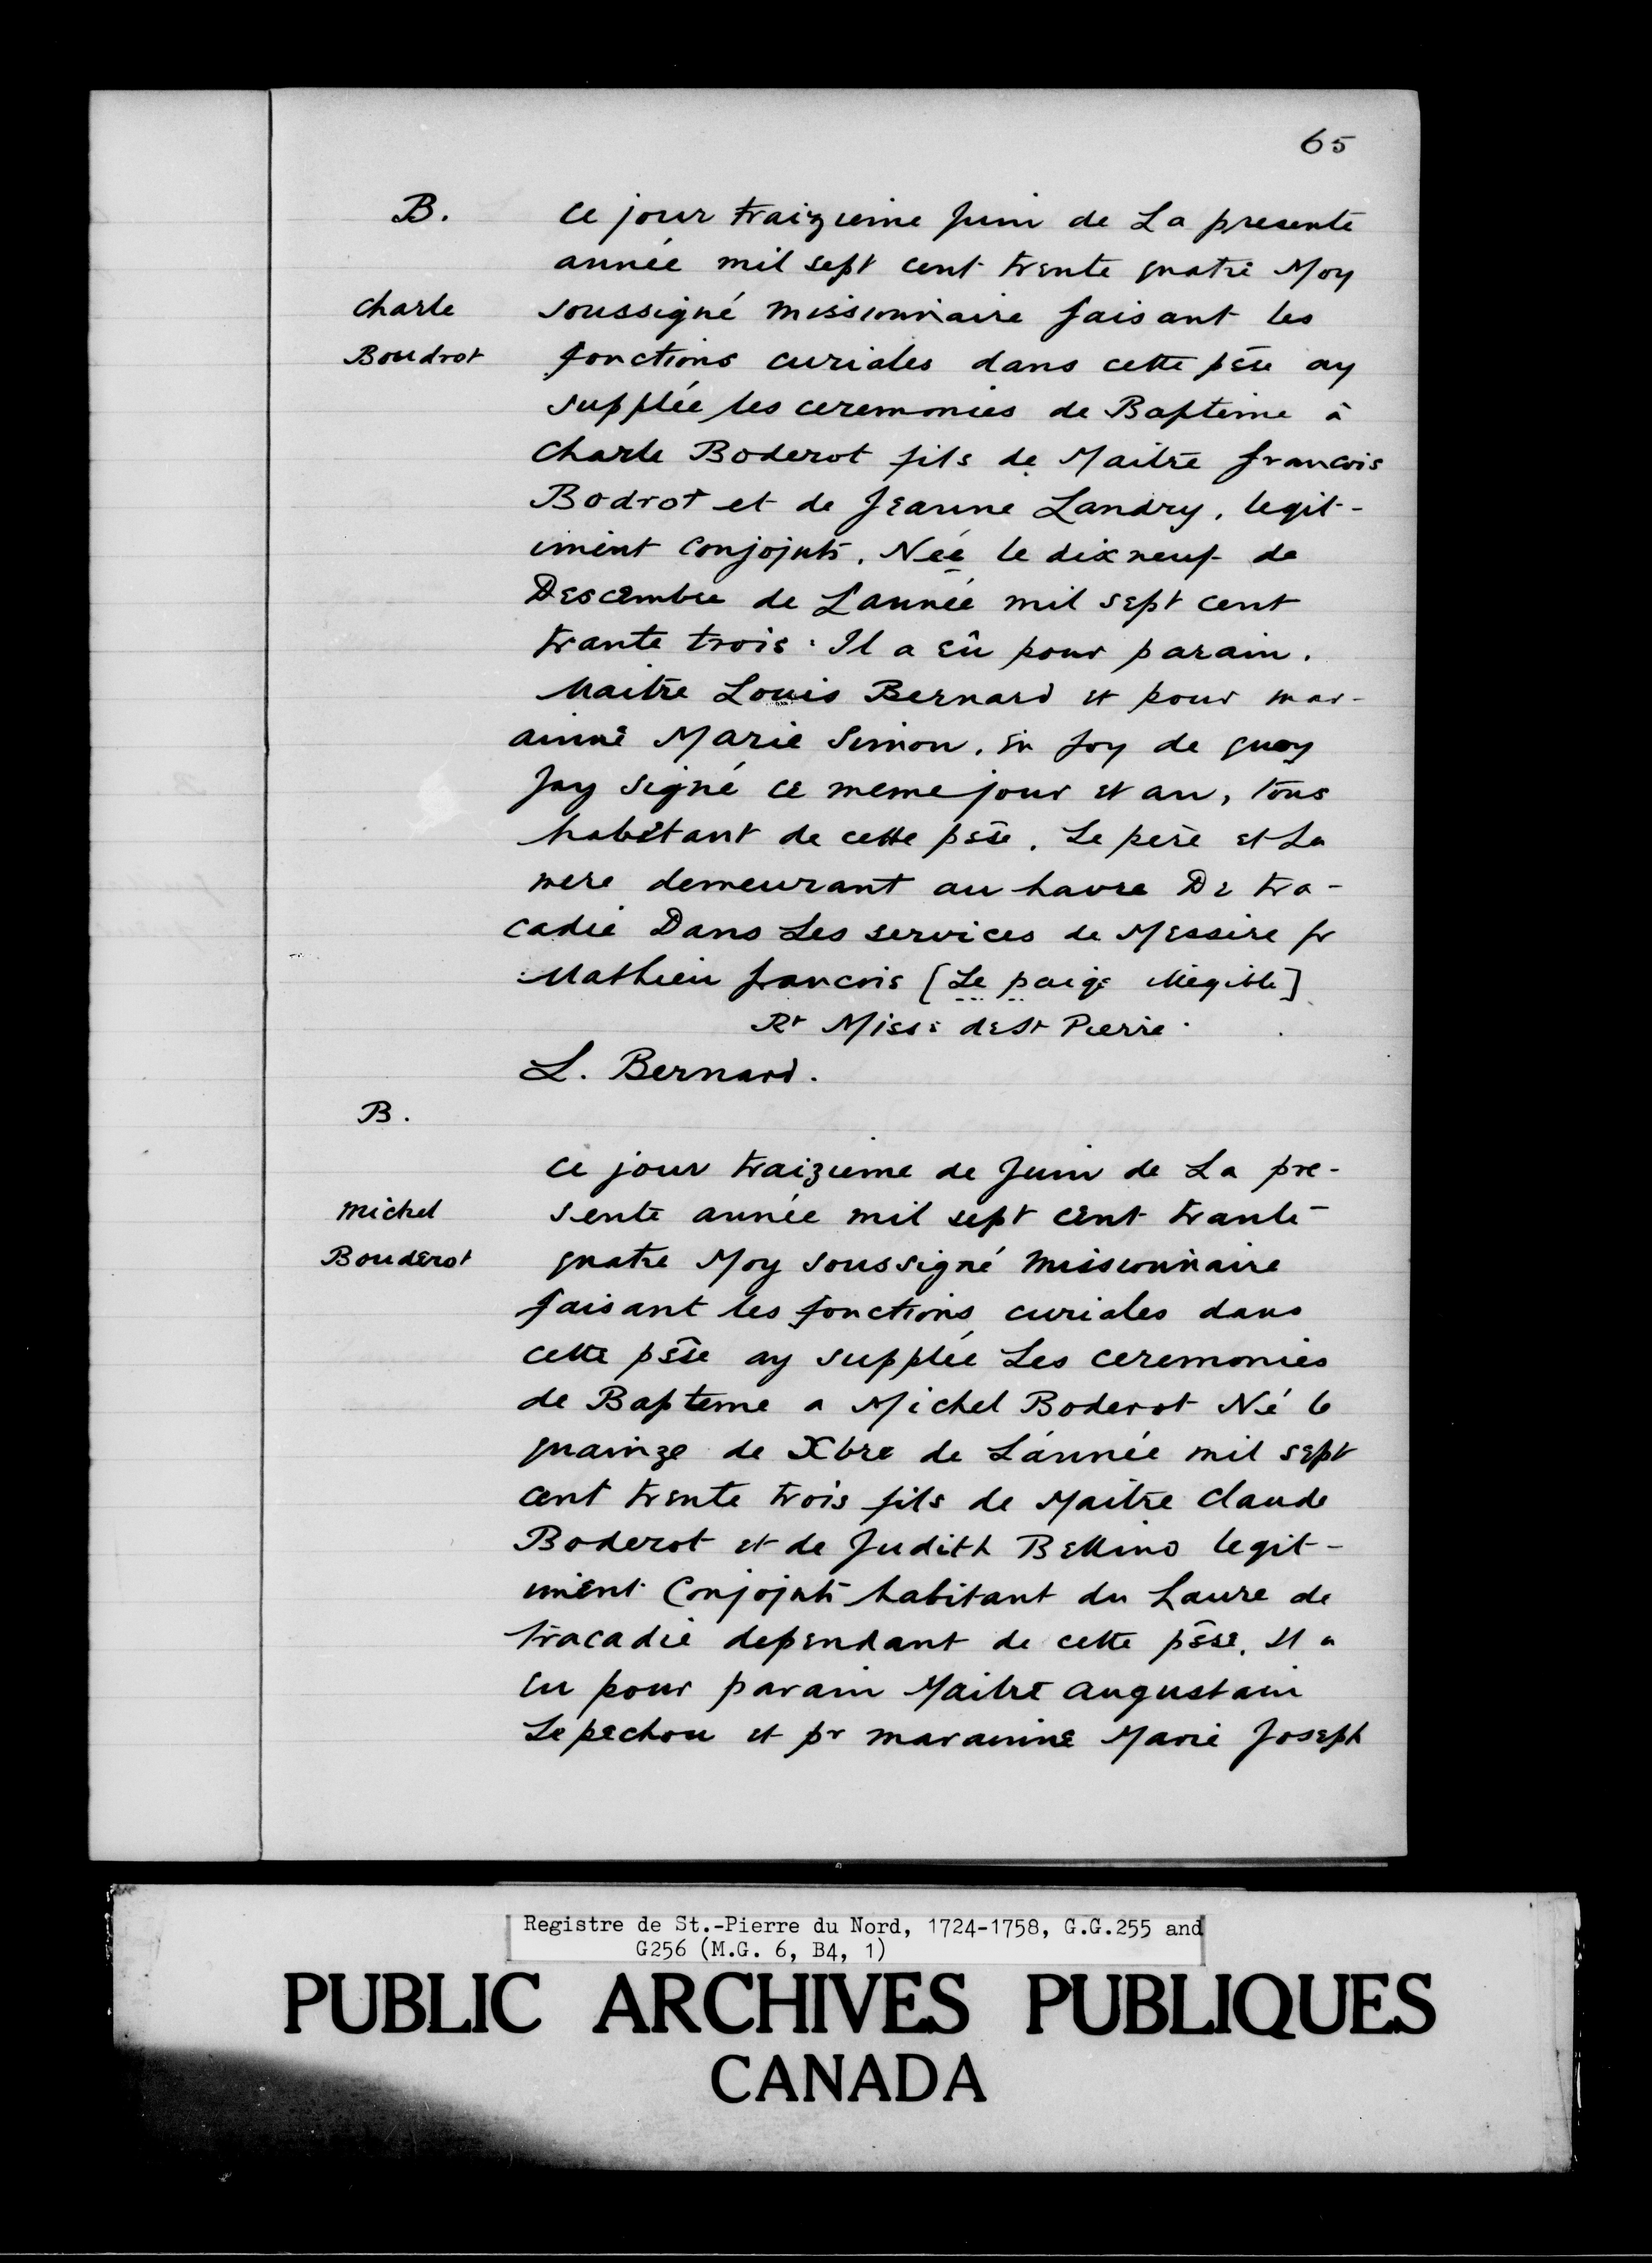 65
B.
Ce jour traizieme Juin de La presente
année mil sept cent trente quatre Moy
Charle
soussigné missionnaire faisant les
Boudrot
fonctions curiales dans cette pšse ay
supplée les ceremonies de Bapteme à
Charle Boderot fils de Maitre francois
Bodrot et de Jeanne Landry, legit-
iment conjojnts. Née le dix neuf de
Descembre de L'année mil sept cent
trante trois. Il a eû pour parain.
Maitre Louis Bernard et pour mar-
ainne Marie Simon. En foy de quoy
Jay signé ce meme jour et an, tous
habitant de cette pšse. Le pere et La
mere demeurant au havre De tra-
cadie Dans Les services de Messire fr
Mathieu francois [Le paige illegible]
Rt Miss: de St Pierre.
L. Bernard.
B.
Ce jour traizieme de Juin de La pre-
Michel
sente année mil sept cent trante
Bouderot
quatre Moy soussigné Missionnaire
faisant les fonctions curiales dans
cette pšse ay supplée Les ceremonies
de Bapteme a Michel Boderot Né le
quainze de Xbre de L'année mil sept
cent trente trois fils de Maitre Claude
Boderot et de Judith Bellino legit-
iment Conjojnts habitant du havre de
tracadie dependant de cette pšse. Il a
eu pour parain Maitre augustain
Le pechou et pr marainne Marie Joseph
Registre de St.-Pierre du Nord, 1724-1758, G.G.255 and
G256 (M.G. 6, B4, 1)
PUBLIC ARCHIVES PUBLIQUES
CANADA